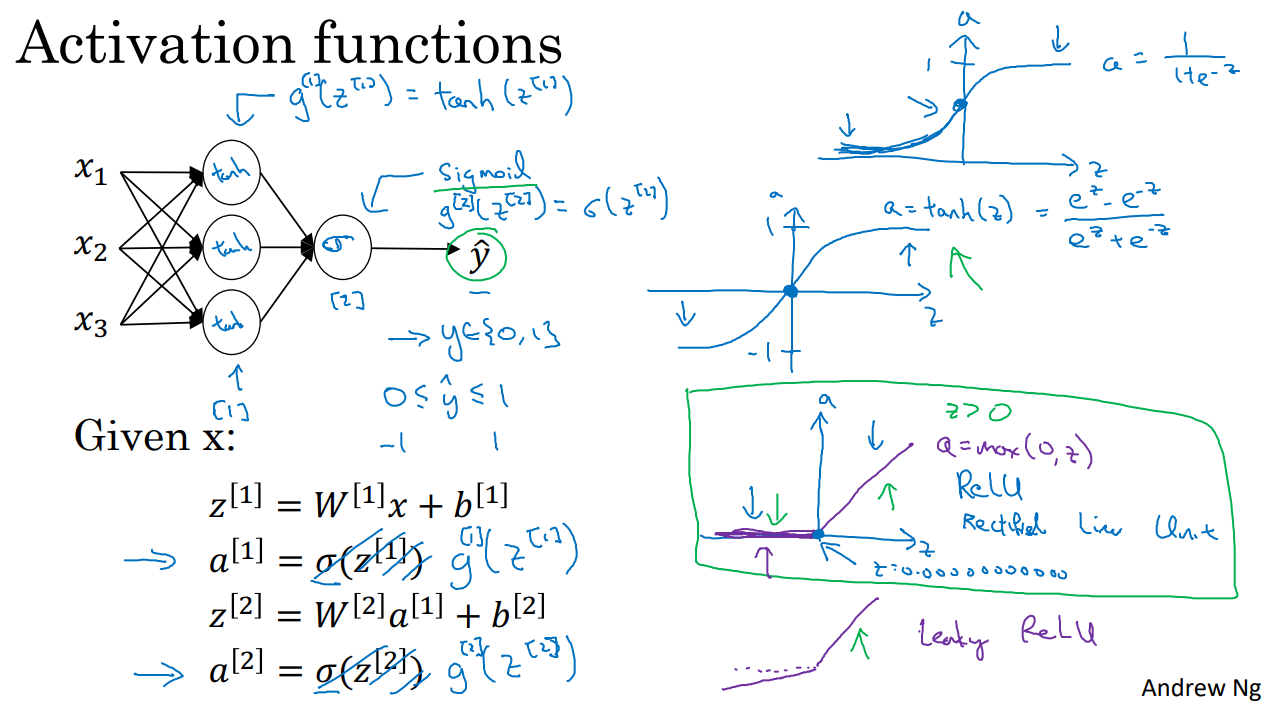 Activation functions
g^[1](z^[1]) = tanh(z^[1])
x₁
x₂
x₃
tanh
tanh
tanh
σ
ŷ
[1]
[2]
Sigmoid
g^[2](z^[2]) = σ(z^[2])
→ y∈{0,1}
0 ≤ ŷ ≤ 1
-1 1
Given x:
z^[1] = W^[1]x + b^[1]
⇒ a^[1] = σ(z^[1]) g^[1](z^[1])
z^[2] = W^[2]a^[1] + b^[2]
⇒ a^[2] = σ(z^[2]) g^[2](z^[2])
a
1
z
a = 1/(1+e^-z)
a
1
-1
z
a = tanh(z) = (e^z - e^-z)/(e^z + e^-z)
a
z
z > 0
a = max(0,z)
ReLU
Unit
z=0.00000000000
Leaky ReLU
Andrew Ng